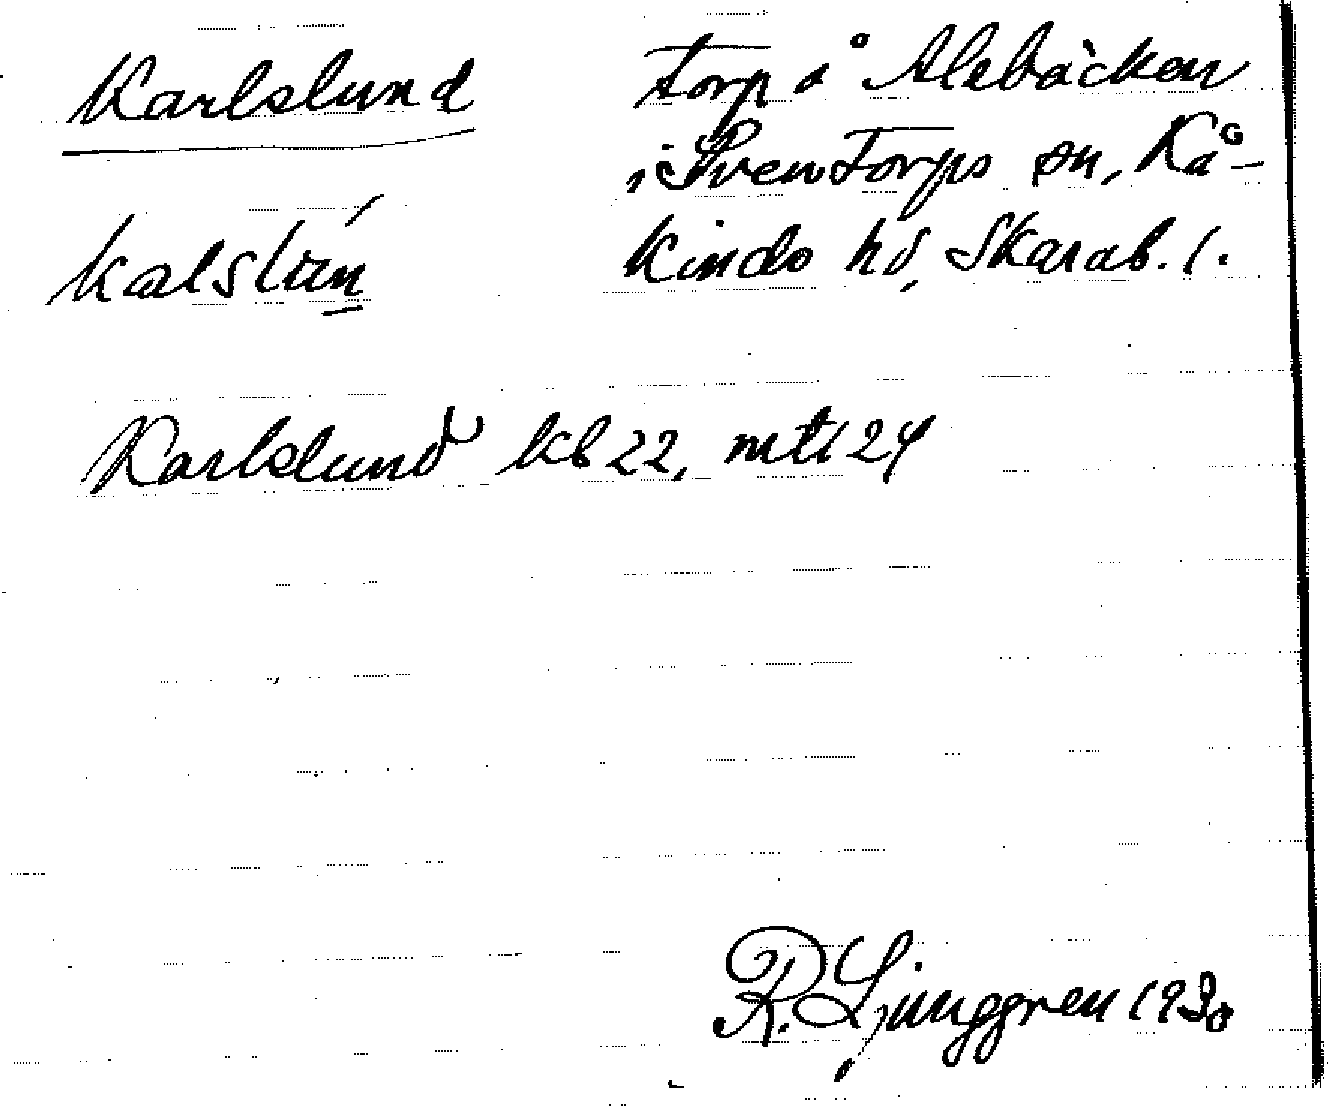 Karlslund
Torp å Alebäcken
i Sventorps sn, Kå-
kinds hd, Skarab. l.
Kalslun
Karlslund kb 22, mtl 24
R. Ljunggren 1930